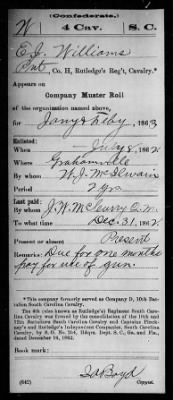 (Confederate.)
W 4 Cav. S. C.
E. J. Williams
Pvt., Co. H, Rutledge's Reg't, Cavalry.*
Appears on
Company Muster Roll
of the organization named above,
for Jany & Feby, 1863
Enlisted:
When July 8, 1862
Where Grahamville
By whom W. J. McElwain
Period 2 yrs
Last paid:
By whom J. W. McCurry Q. M.
To what time Dec. 31, 1862
Present or absent Present
Remarks: Due for one months
pay for use of gun.
*This company formerly served as Company D, 10th Battalion South Carolina Cavalry.
The 4th (also known as Rutledge's) Regiment South Carolina Cavalry was formed by the consolidation of the 10th and 12th Battalions South Carolina Cavalry, and Captains
and Rutledge's Independent Companies, South Carolina Cavalry, by S. O. No. Hdqrs. Dept. S. C., Ga. and Fla., dated December 16, 1862.
Book mark:
(642) Boyd
Copyist.